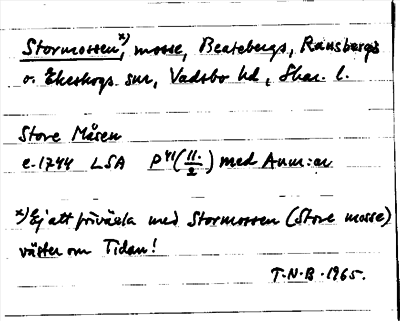 Stormossen,ˣ⁾ mosse, Beatebergs, Ransbergs
o. Ekeskogs snr, Vadsbo hd, Skar. l.
Store Måsen
e. 1744 LSA P⁴¹(11:/2) med Anm:ar
x) Ej att förväxla med Stormossen (Store mosse)
väster om Tidan!
T.N.B. 1965.